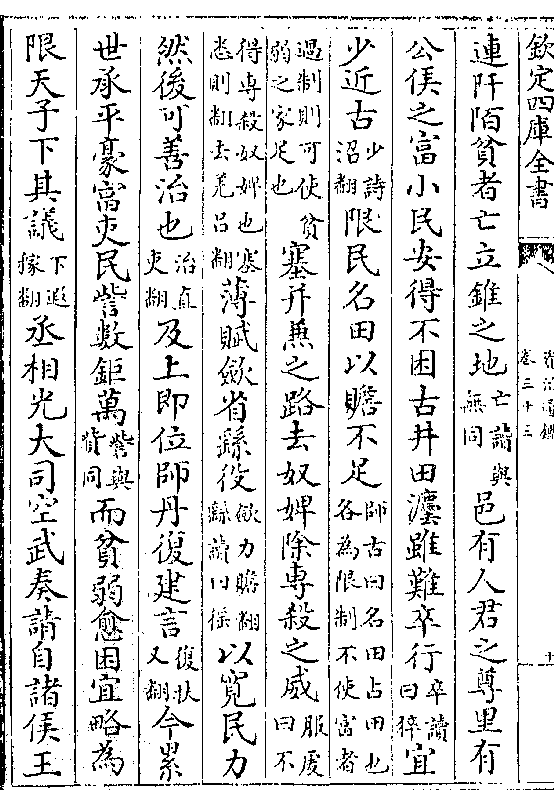 欽定四庫全書
資治通鑑
卷三十三
連阡陌貧者亡立錐之地亡讀與無同邑有人君之尊里有
公侯之富小民安得不困古井田灋雖難卒行卒讀曰猝宜
少近古少詩沼翻限民名田以贍不足師古曰名田占田也各為限制不使富者
過制則可使貧弱之家足也塞并兼之路去奴婢除專殺之威服虔曰不
得專殺奴婢也塞悉則翻去羌呂翻薄賦歛省繇役歛力贍翻繇讀曰徭以寛民力
然後可善治也治直吏翻及上即位師丹復建言復扶又翻今累
世承平豪富吏民訾數鉅萬訾與貲同而貧弱愈困宜略為
限天子下其議下遐稼翻丞相光大司空武奏請自諸侯王